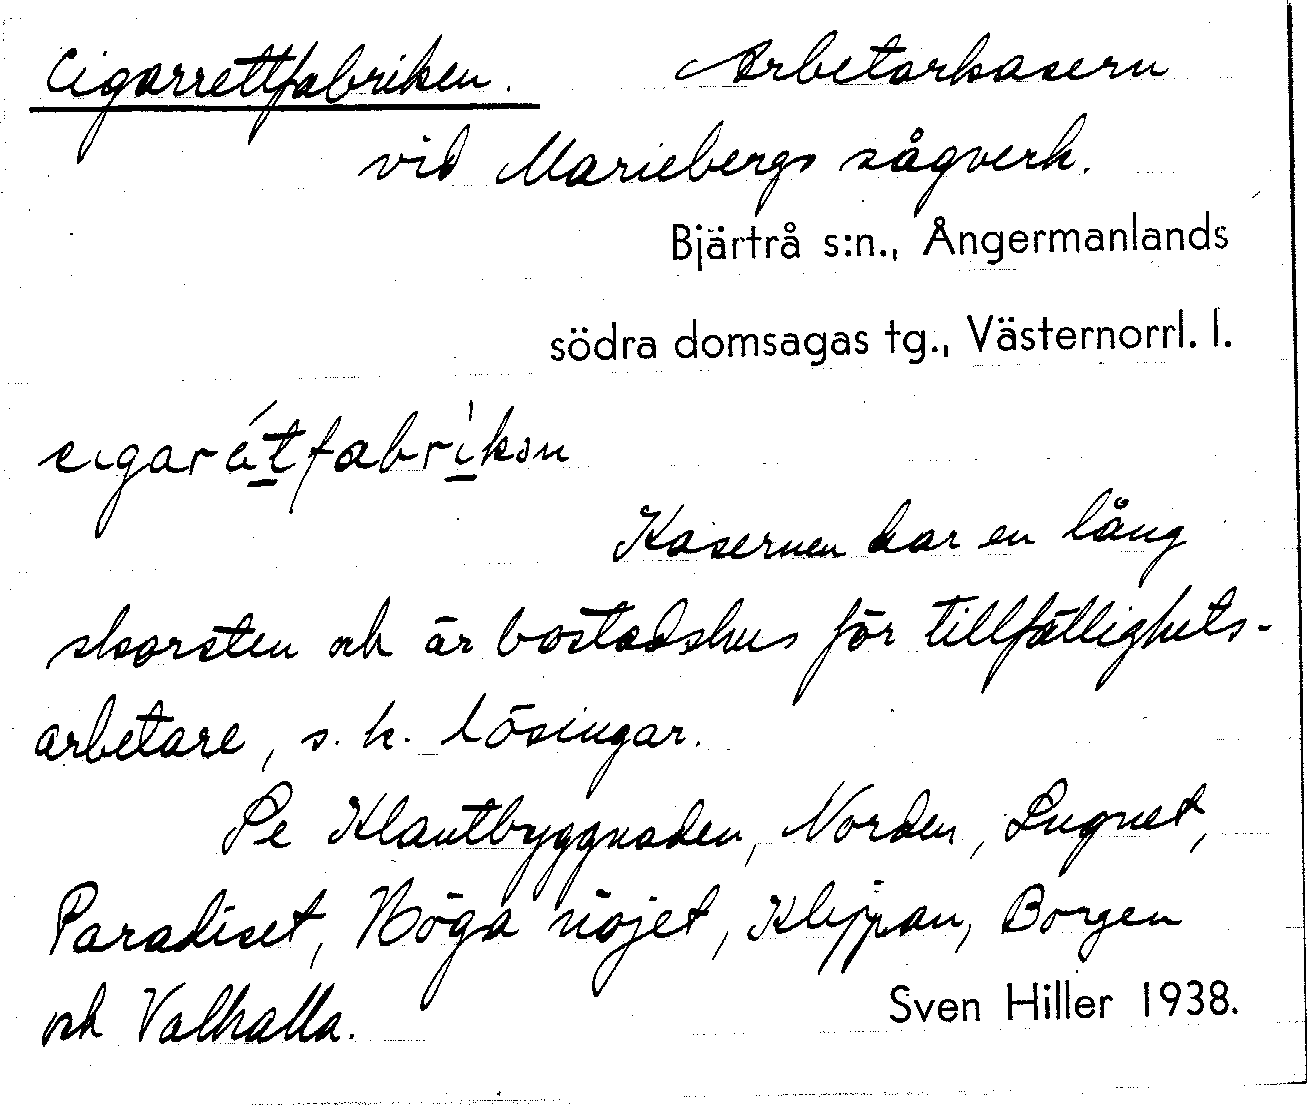 Cigarrettfabriken. Arbetarkasern
vid Mariebergs sågverk.
Bjärtrå s:n., Ångermanlands
södra domsagas tg., Västernorrl. l.
cigarétfabrìkən
Kasernen har en lång
skorsten och är bostadshus för tillfällighets-
arbetare, s. k. lösingar.
Se Klantbyggnaden, Norden, Lugnet,
Paradiset, Höga nöjet, Klippan, Borgen
och Valhalla.
Sven Hiller 1938.